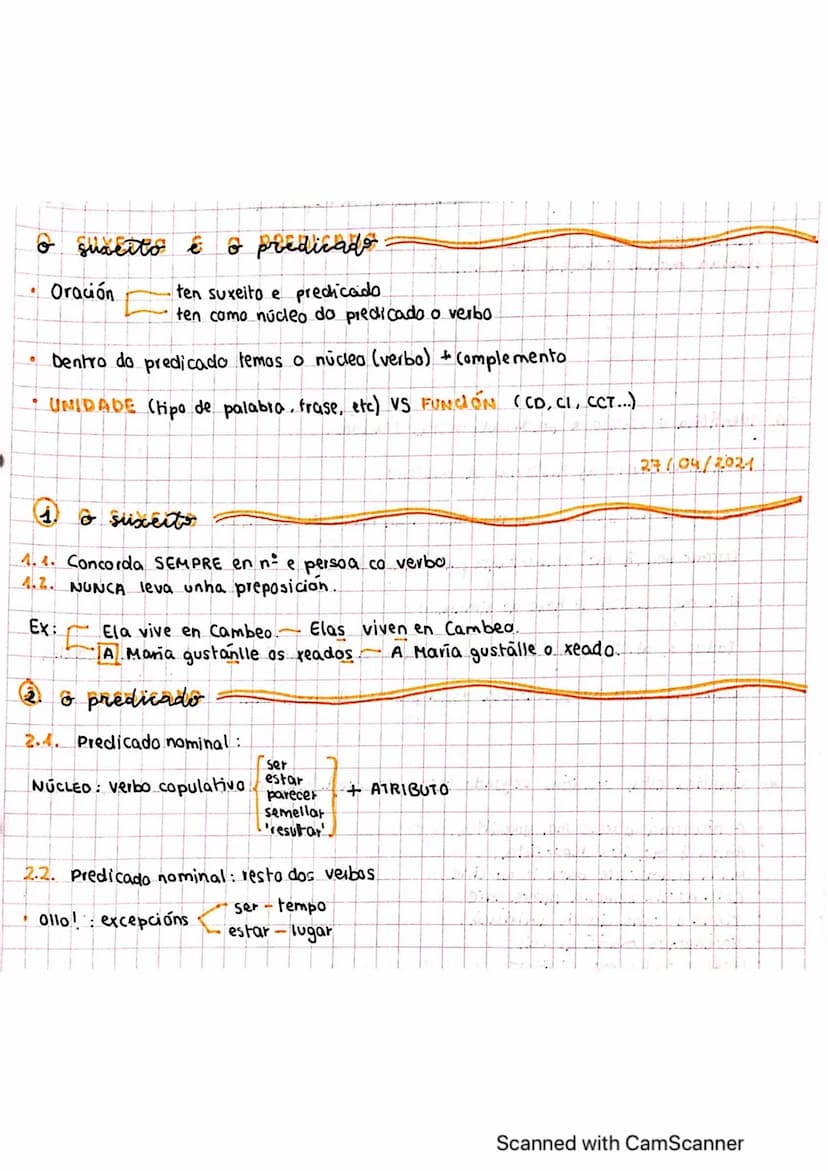 O suxeito e o predicado
• Oración ten suxeito e predicado
ten como núcleo do predicado o verbo
• Dentro do predicado temos o núcleo (verbo) + complemento
• UNIDADE (tipo de palabra, frase, etc) VS FUNCIÓN (CD, CI, CCT...)
27/04/2021
1. O suxeito
1.1. Concorda SEMPRE en nº e persoa co verbo.
1.2. NUNCA leva unha preposición.
Ex: Ela vive en Cambeo. — Elas viven en Cambeo.
A María gústanlle os xeados. — A María gústalle o xeado.
2. O predicado
2.1. Predicado nominal:
ser
estar
NÚCLEO: verbo copulativo parecer + ATRIBUTO
semellar
'resultar'
2.2. Predicado nominal: resto dos verbos
• Ollo!: excepcións ser - tempo
estar - lugar
Scanned with CamScanner